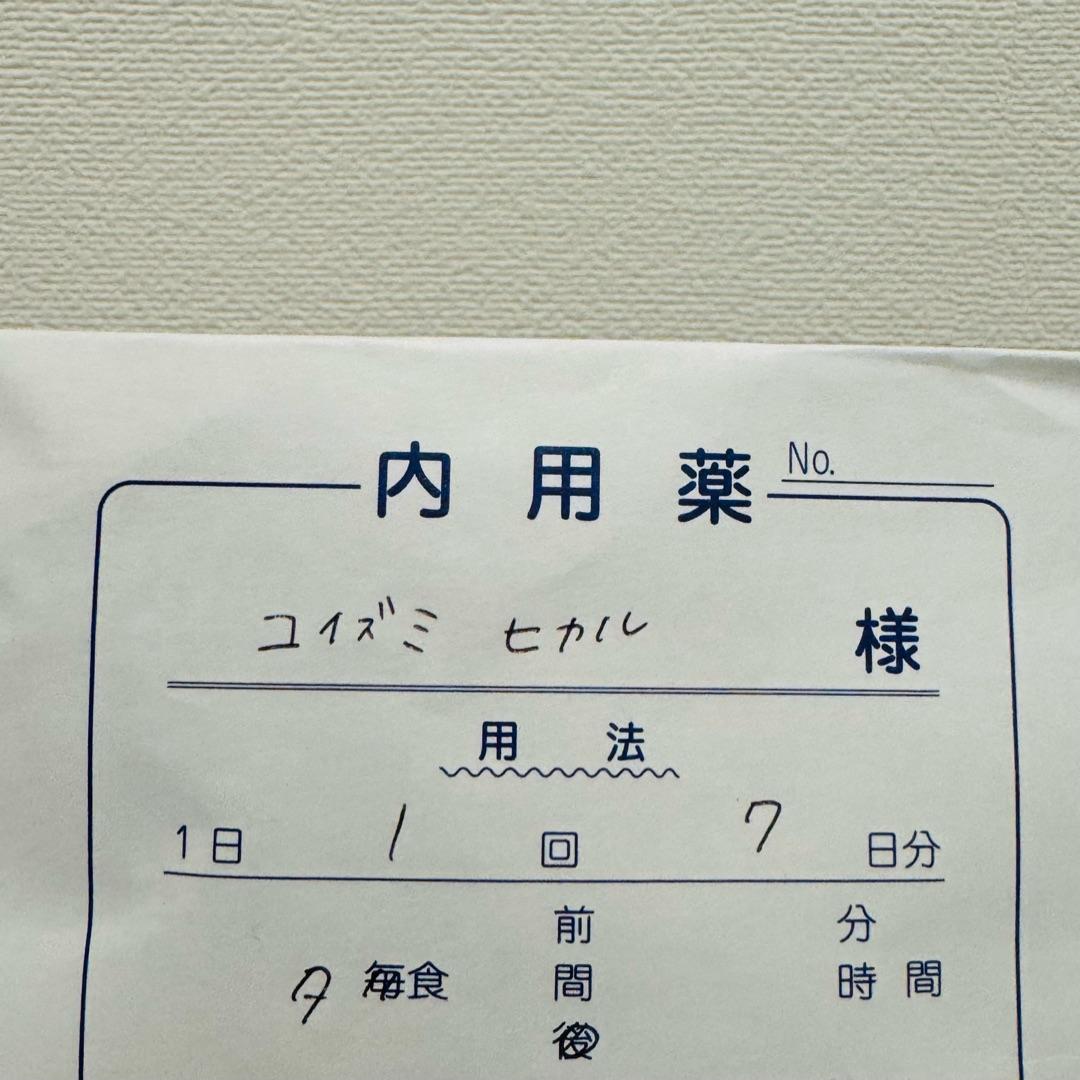 内用薬 No.
コイズミ ヒカル 様
用法
1日 1 回 7 日分
前 分
夕 毎食 間 時間
後